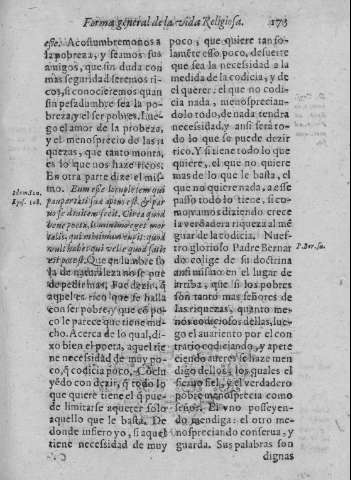 Forma general de la vida Religiosa. 173
este. Acostumbremonos a
la pobreza, y seamos sus
amigos, que sin duda con
mas seguridad seremos ri-
cos, si conocieremos quan
sin pesadumbre sea la po-
breza, y el ser pobres. Lue-
go el amor de la probeza,
y el menosprecio de las ri
quezas, que tanto monta,
es lo que nos haze ricos.
En otra parte dize el mis-
mo. Eum esse locupletem qui
paupertati suæ aptus est, & par
uo se diuitem fecit.
Idem Sen.
Epis. 108.
no es, Que en lumbre
la de naturaleza no se pue
de pedir mas,
aquel es rico que se halla
con ser pobre, y que es po-
co le parece que tiene mu-
cho. Acerca de lo qual, di-
xo bien el poeta, aquel tie
ne necessidad de muy po-
co, q̃ codicia poco. Cõclu
yẽdo con dezir, q̃ todo lo
que quiere tiene el q̃ pue-
de limitarse a querer solo
aquello que le basta. De
donde infiero yo, si aquel
tiene necessidad de muy
poco, que quiere tan so-
lamẽte esso poco, de suerte
que sea la necessidad a la
medida de la codicia, y de
el querer: el que no codi-
cia nada, menospreciau-
dolo todo, de nada tendra
necessidad, y ansi será to-
do lo que se puede dezir
rico. Y si tiene todo lo que
quiere, el que no quiere
mas de lo que le basta, el
que no quiere nada, a esse
passo todo lo tiene, si co-
mo vamos diziendo crece
la verdadera riqueza al mẽ
guar de la codicia. Nues-
tro glorioso Padre Bernar
do colige de su doctrina
P. Ber. su.
anti mismo en el lugar de
arriba, que si los pobres
son tanto mas señores de
las riquezas, quanto me-
nos codiciosos dellas, lue-
go el auariento por el con
trario codiciando, y apete
ciendo aueres se haze men
digo dellos, los quales el
sieruo fiel, y el verdadero
pobre menosprecia como
señor. El vno posseyen-
do mendiga: el otro me-
nospreciando conserua, y
guarda. Sus palabras son
dignas